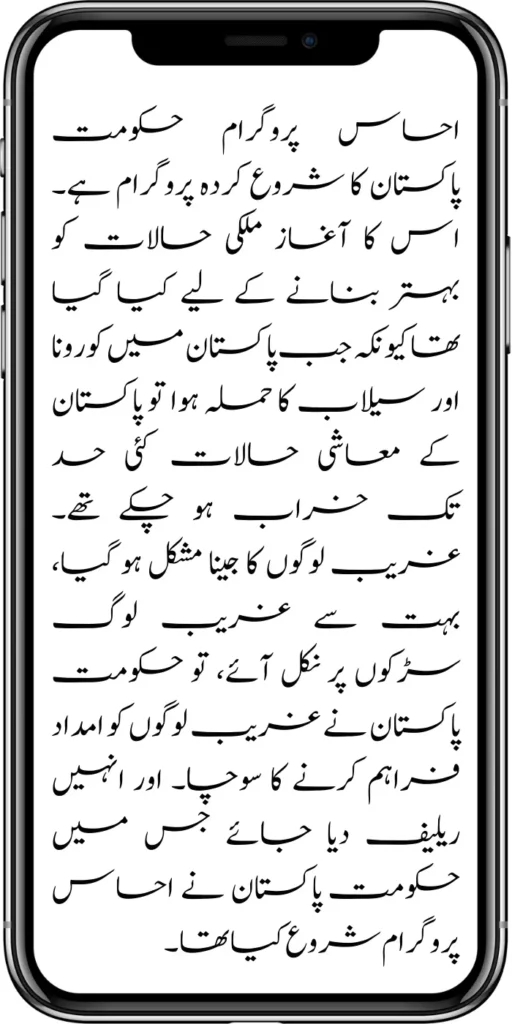 احساس پروگرام حکومت
پاکستان کا شروع کردہ پروگرام ہے۔
اس کا آغاز ملکی حالات کو
بہتر بنانے کے لیے کیا گیا
تھا کیونکہ جب پاکستان میں کورونا
اور سیلاب کا حملہ ہوا تو پاکستان
کے معاشی حالات کئی حد
تک خراب ہو چکے تھے۔
غریب لوگوں کا جینا مشکل ہو گیا،
بہت سے غریب لوگ
سڑکوں پر نکل آئے، تو حکومت
پاکستان نے غریب لوگوں کو امداد
فراہم کرنے کا سوچا۔ اور انہیں
ریلیف دیا جائے جس میں
حکومت پاکستان نے احساس
پروگرام شروع کیا تھا۔